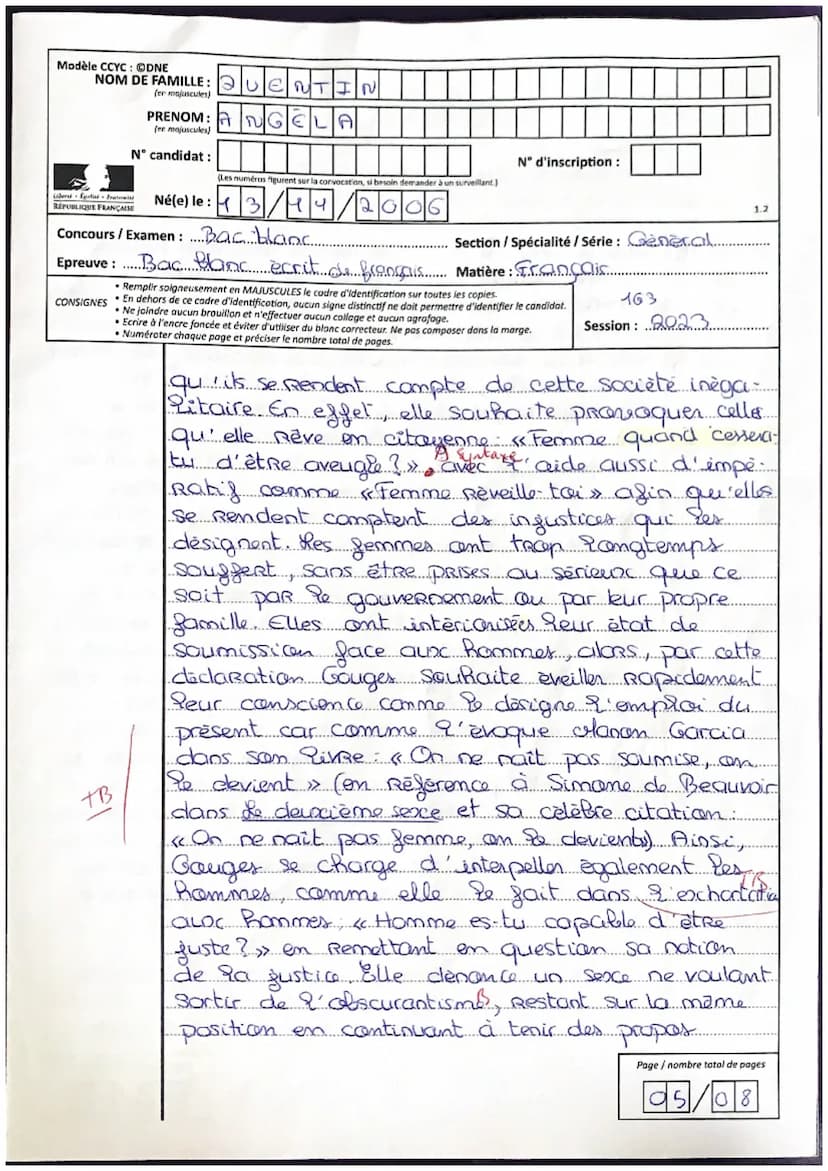 Modèle CCYC : ©DNE
NOM DE FAMILLE : QUENTIN
(en majuscules)
PRENOM : ANGÉLA
(en majuscules)
N° candidat :
N° d'inscription :
(Les numéros figurent sur la convocation, si besoin demander à un surveillant.)
Liberté • Égalité • Fraternité
RÉPUBLIQUE FRANÇAISE
Né(e) le : 13/11/2006
1.2
Concours / Examen : Bac blanc
Section / Spécialité / Série : Général
Epreuve : Bac blanc écrit de français
Matière : Français
CONSIGNES
• Remplir soigneusement en MAJUSCULES le cadre d'identification sur toutes les copies.
• En dehors de ce cadre d'identification, aucun signe distinctif ne doit permettre d'identifier le candidat.
• Ne joindre aucun brouillon et n'effectuer aucun collage et aucun agrafage.
• Ecrire à l'encre foncée et éviter d'utiliser du blanc correcteur. Ne pas composer dans la marge.
• Numéroter chaque page et préciser le nombre total de pages.
163
Session : 2023
qu'ils se rendent compte de cette société inéga-
litaire. En effet, elle souhaite provoquer celles
qu'elle rêve en citoyenne : « Femme quand cessera-
tu d'être aveugle ? » . avec l'aide aussi d'impé-
Syntaxe
ratif comme « Femme réveille-toi » afin qu'elles
se rendent comptent des injustices qui les
désignent. Les femmes ont trop longtemps
souffert, sans être prises au sérieux que ce
soit par le gouvernement ou par leur propre
famille. Elles ont intériorisées leur état de
soumission face aux hommes, alors, par cette
déclaration Gouges souhaite éveiller rapidement
leur conscience comme le désigne l'emploi du
présent car comme l'évoque Manon Garcia
dans son livre : « On ne naît pas soumise, on
le devient » (en référence à Simone de Beauvoir
TB
dans Le deuxième sexe et sa célèbre citation :
« On ne naît pas femme, on le devient»). Ainsi,
Gouges se charge d'interpeller également les
hommes, comme elle le fait dans l'exhortation
TB
aux hommes : « Homme es-tu capable d'être
juste ? » en remettant en question sa notion
de la justice. Elle dénonce un sexe ne voulant
sortir de l'obscurantisme, restant sur la même
B
position en continuant à tenir des propos
Page / nombre total de pages
05/08